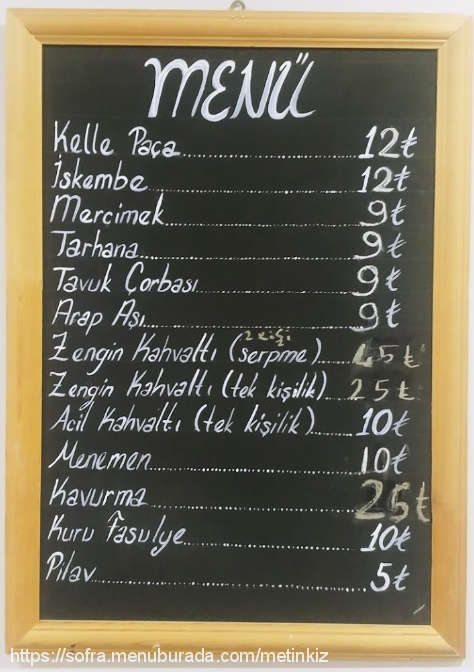 MENÜ
Kelle Paça 12₺
İskembe 12₺
Mercimek 9₺
Tarhana 9₺
Tavuk Çorbası 9₺
Arap Aşı 9₺
2 kişi
Zengin Kahvaltı (serpme) 45₺
Zengin Kahvaltı (tek kişilik) 25₺
Acil Kahvaltı (tek kişilik) 10₺
Menemen 10₺
Kavurma 25₺
Kuru Fasulye 10₺
Pilav 5₺
https://sofra.menuburada.com/metinkiz